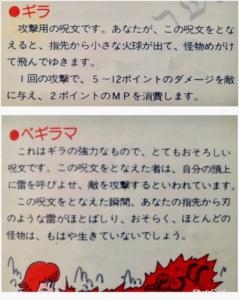 ●ギラ
攻撃用の呪文です。あなたが、この呪文をとな
えると、指先から小さな火球が出て、怪物めがけ
て飛んでゆきます。
1回の攻撃で、5～12ポイントのダメージを敵
に与え、2ポイントのMPを消費します。
●ベギラマ
これはギラの強力なもので、とてもおそろしい
呪文です。この呪文をとなえた者は、自分の頭上
に雷を呼びよせ、敵を攻撃するといわれています。
この呪文をとなえた瞬間、あなたの指先から刃
のような雷がほとばしり、おそらく、ほとんどの
怪物は、もはや生きていないでしょう。